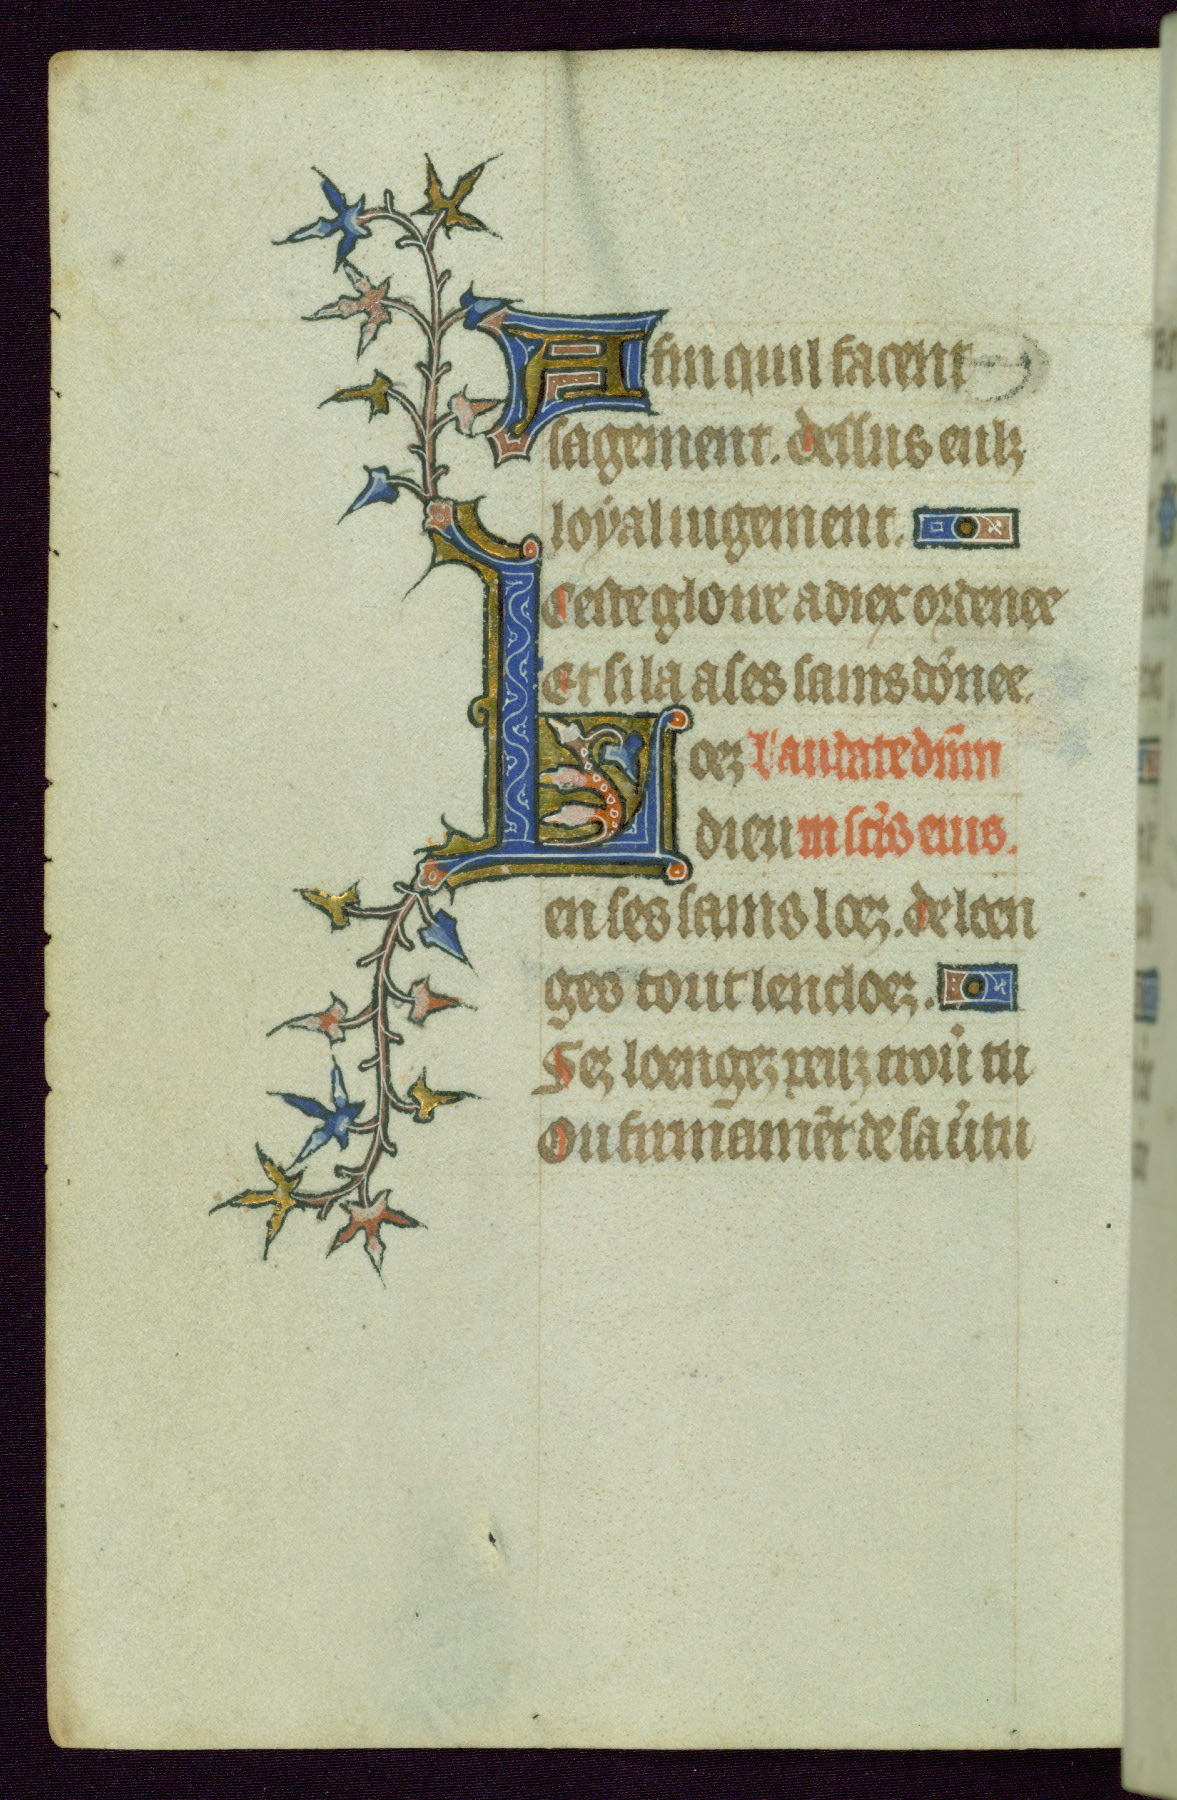 Afin quil facent
sagement. dessus eulz
loyal iugement.
Ceste gloire a diex ordenee
Et si la a ses sains dōnee.
Loez Laudate dn̄m
dieu in scīs eius.
en ses sains loez. de loen
ges tout lencloez.
Sez loengez peuz trou᷑ tu
Ou firmamēt de sa u᷑tu